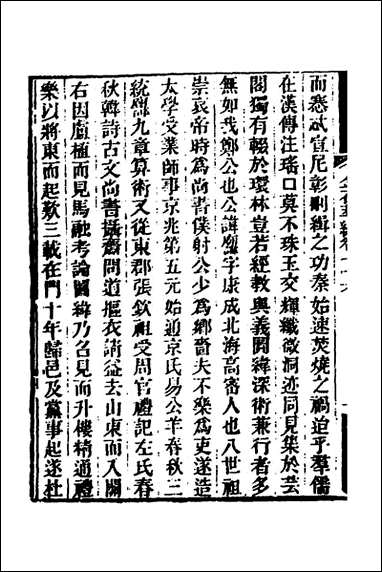 而悉試宣尼彰刪緝之功秦始速焚燒之禍迨乎羣儒
在漢傳注瑤口莫不珠玉交輝纖微洞迹同見集於芸
閣獨有輟於環林豈若經敎輿義圖緯深術兼行者多
無如我鄭公也公諱康成北海高密人也八世祖
崇哀帝時爲尚書僕射公少爲鄉嗇夫不樂爲吏遂造
太學受業師事京兆第五元始通京氏易公羊春秋三
統曆九章算術又從東郡張欽祖受周官禮記左氏春
秋韓詩古文尚書攝齋問道摳衣請益去山東而入關
右因盧植而見馬融考論圖緯乃召見而升樓精通禮
樂以將東而起歎三載在門十年歸邑及黨事起遂杜